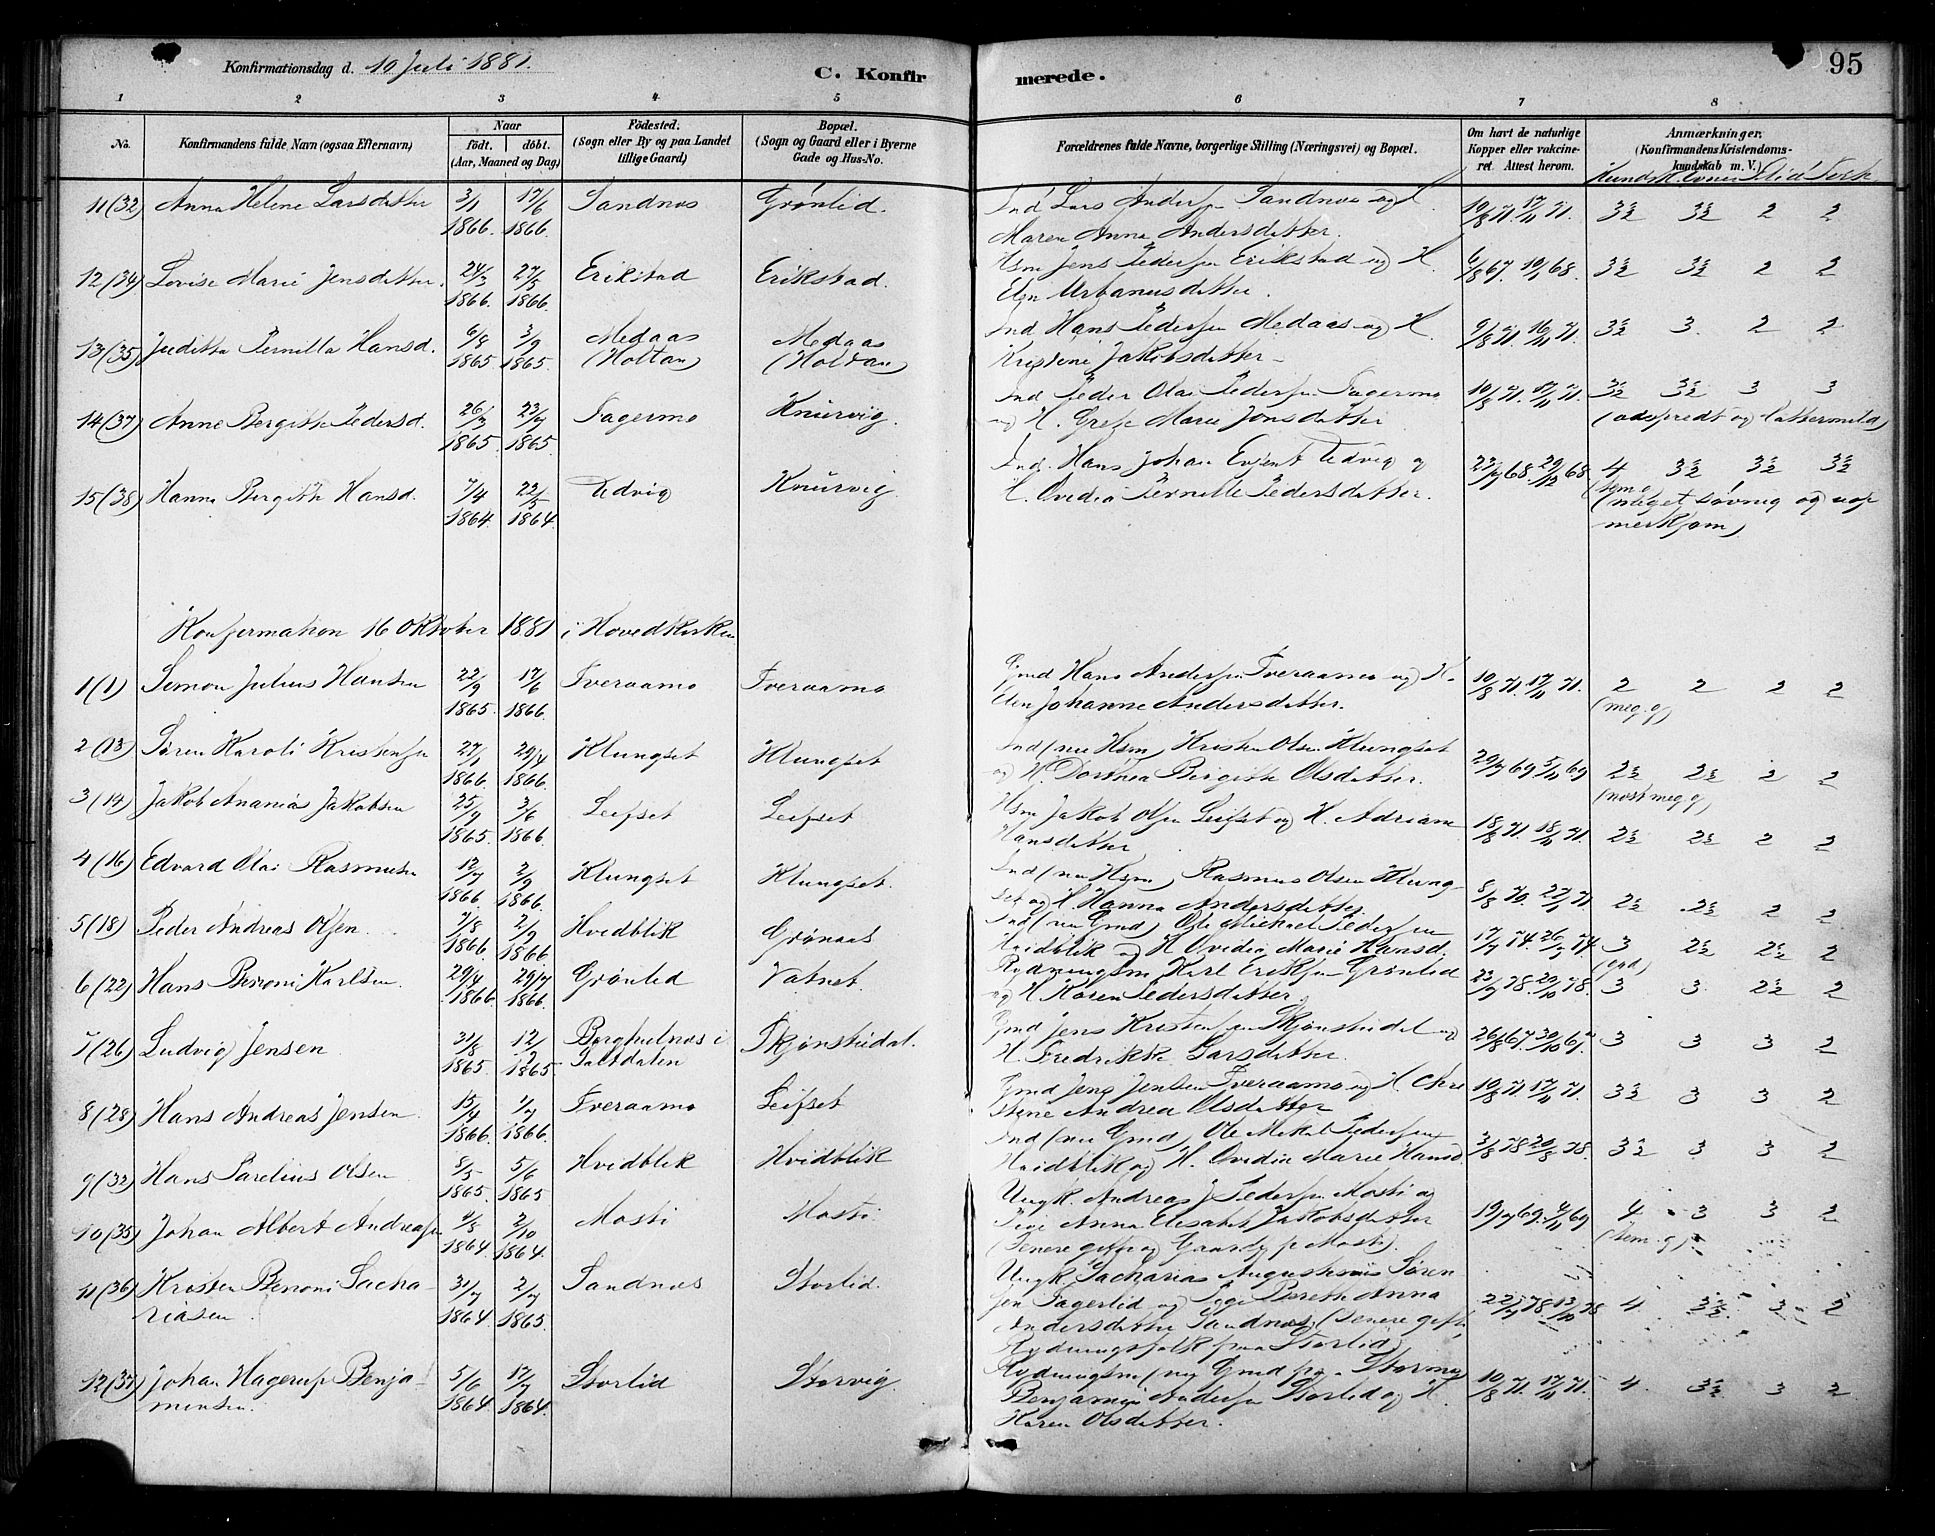 Konfirmationsdag d. 10 Juli 1881.
C. Konfirmerede.
95
1 2 3 4 5 6 7 8
No.
Konfirmandens fulde Navn (ogsaa Efternavn)
Naar
født. døbt.
(Aar, Maaned og Dag)
Födested.
(Sogn eller By og paa Landet
tillige Gaard)
Bopæl.
(Sogn og Gaard eller i Byerne
Gade og Hus-No.
Forældrenes fulde Navne, borgerlige Stilling (Næringsvei) og Bopæl.
Om havt de naturlige
Kopper eller vakcine-
ret. Attest herom.
Anmærkninger.
(Konfirmandens Kristendoms-
kundskab m. V.)
Kundsk. Evner Flid
11(32) Anna Helene Larsdatter 3/1 1866. 17/6 1866. Sandnes Grønlid. Ind Lars Andersen Sandnes og H.
Maren Anna Andersdatter. 10/8 71. 17/11 71. 3½ 3½ 2 2
12(34) Lovise Marie Jensdatter. 24/3 1866. 27/5 1866. Erikstad Erikstad. Hsm Jens Pedersen Erikstad og H.
Elen Urbanusdatter. 6/8 67. 19/1 68. 3½ 3½ 2 2
13(35) Juditta Pernilla Hansd. 6/8 1865 3/9 1865. Medaas (Holtan) Medaas (Holtan) Ind Hans Pedersen Medaas og H
Kristine Jakobsdatter 9/8 71. 16/11 71. 3½ 3. 2 2
14(37) Anne Bergitte Pedersd. 26/3 1865 23/7 1865. Fagermo Knurvig. Ind Peder Olai Pedersen Fagermo
og H. Grete Marie Jonsdatter 10/8 71. 17/11 71. 3½ 3½ 3 3
(adspredt og lattermild)
15(38) Hanna Bergitte Hansd. 7/4 1864 22/5 1864. Tidvig Knurvig. Ind. Hans Johan Evjent Tidvig og
H. Ovedia Pernille Pedersdatter. 23/7 68. 29/12 68 4 3½ 3½ 3½
(meget søvnig og uop
merksom)
Konfirmation 16 Oktober 1881 i Hovedkirken
1(1) Simon Julius Hansen 22/9 1865. 17/6 1866. Tveraamo Tveraamo Gmd Hans Andersen Tveraamo og H.
Elen Johanne Andersdatter. 10/8 71. 17/11 71. 2 2 2 2
(meg. g)
2(13) Søren Karoli Kristensen 27/1 1866 29/4 1866. Klungset Klungset Ind (nu Hsm) Kristen Olsen Klungset
og H. Dortnea Bergitte Olsdatter. 29/7 69 5/11 69 2½ 2½ 2 2
(næst meg g)
3(14) Jakob Ananias Jakobsen 25/9 1865. 3/6 1866. Leifset Leifset Hsm Jakob Olsen Leifset og H. Adriane
Hansdatter 18/8 71. 18/11 71. 2½ 2½ 2 2
4(16) Edvard Olai Rasmusen 12/7 1866. 2/9 1866. Klungset Klungset. Ind (nu Hsm) Rasmus Olsen Klung-
set og H. Hanna Andersdatter. 8/8 70. 27/1 71 2½ 2½ 2 2
5(18) Peder Andreas Olsen. 7/8 1866. 2/9 1866. Hvidblik Grønaas Ind (nu Gmd) Ole Michael Pedersen
Hvidblik og H Ovedia Marie Hansd. 17/7 74. 26/7 74 3 2½ 2½ 2
(god)
6(22) Hans Benoni Karlsen. 29/4 1866. 29/7 1866. Grønlid Vatnet. Rydningsm. Karl Eriksen Grønlid
og H Karen Pedersdatter. 23/7 78. 20/10 78. 3 3. 2½ 2
7(26) Ludvig Jensen 31/8 1865. 12/12 1865. Borghulnes i Saltdalen Skjønstudal. Gmd Jens Kristensen Skjønstudal og
H. Fredrikke Larsdatter. 26/8 67. 30/10 67. 3 3 3 2
8(28) Hans Andreas Jensen 15/4 1866. 1/7 1866. Tveraamo Leifset Gmd Jens Jensen Tveraamo og H Chri
stine Andrea Olsdatter 10/8 71. 17/11 71. 3½ 3 3 2
9(32) Hans Parelius Olsen 8/5 1865. 5/6 1865 Hvidblik Hvidblik Ind (nu Gmd) Ole Mikal Pedersen
Hvidblik og H. Ovedia Marie Hansd. 3/8 78 20/8 78. 3½ 3 3 2
10(35) Johan Albert Andreasen 4/8 1864. 2/10 1864. Mosti Mosti. Ungk. Andreas J. Pedersen Mosti og
Pige Anna Elisabet Jakobsdatter
(Senere gifte og Gaardf. p Mosti). 19/7 69. 4/11 69 4 3 3 2
(tem. g)
11(36) Kristen Benoni Sacha-
riasen 31/7 1864 2/7 1865. Sandnes Storlid. Ungk Sacharias Augustinius Søren
sen Fagerlid og Pige Bereth Anna
Andersdatter Sandnes (Senere gifte,
Rydningsfolk paa Storlid) 22/7 78. 13/10 78 4 3½. 3 2
12(37) Johan Hagerup Benja-
minsen. 5/6 1864 17/7 1864. Storlid Storvig. Rydningsm (nu Gmd paa Storvig)
Benjamin Andersen Storlid og H.
Karen Olsdatter. 10/8 71. 17/11 71. 4. 3½ 3 2